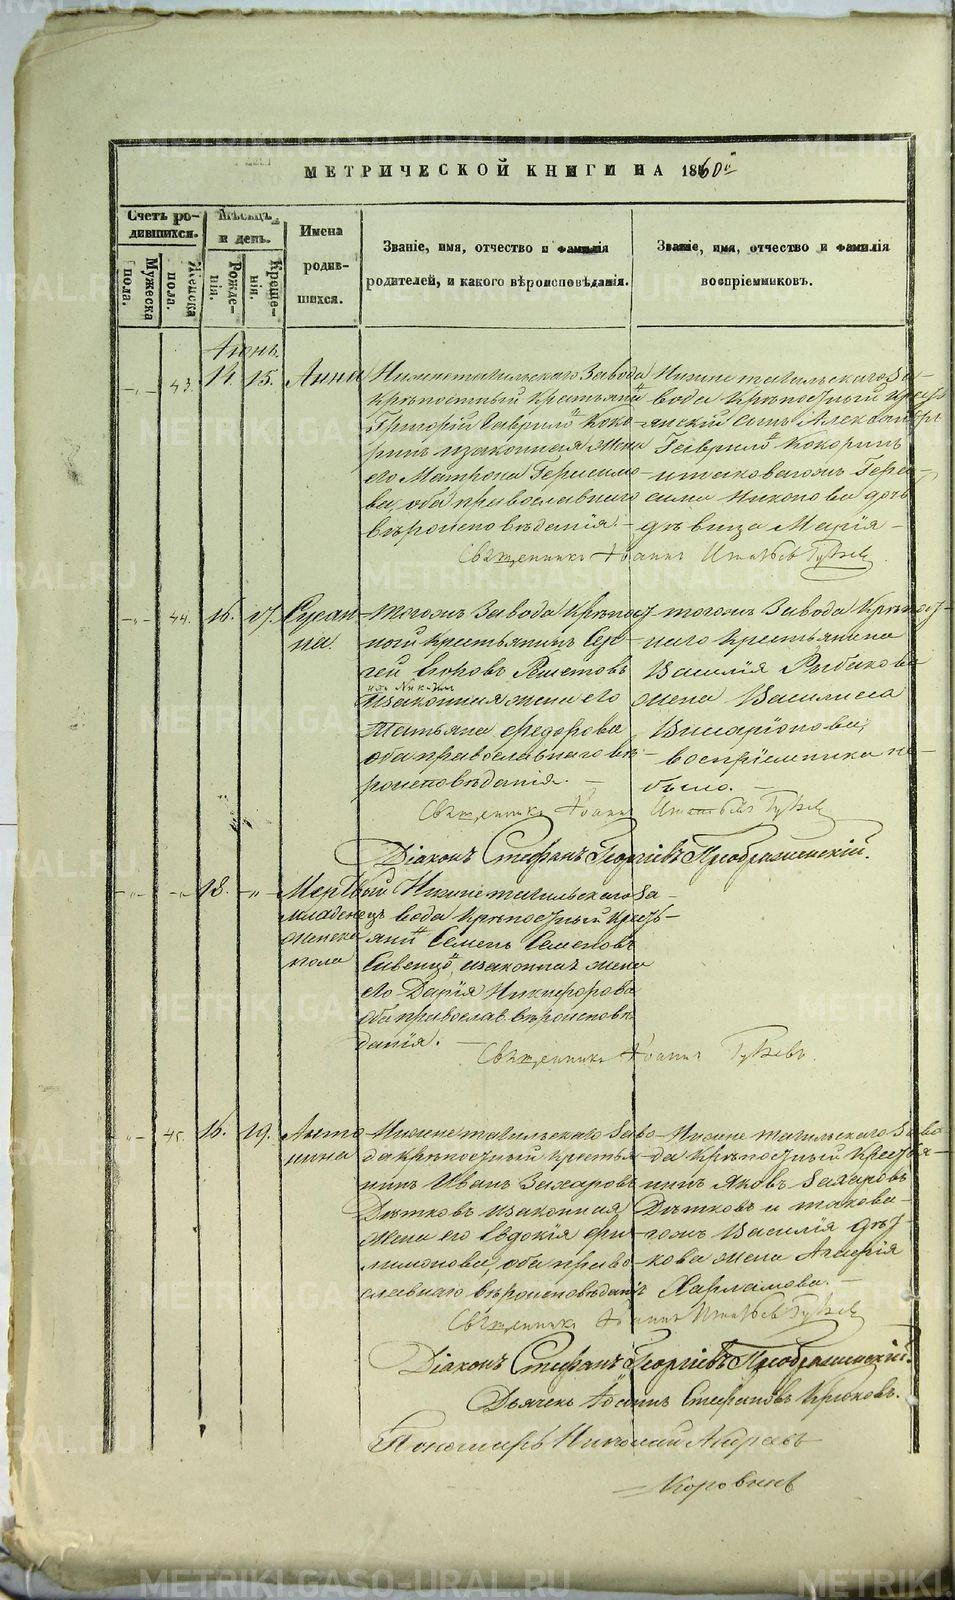 METRIKI.GASO-URAL.RU
МЕТРИЧЕСКОЙ КНИГИ НА 1860й
Счетъ ро-
дившихся.
Мужеска пола.
Женска пола.
Мѣсяцъ
и день.
Рожде-
нія.
Креще-
нія.
Имена
родив-
шихся.
Званіе, имя, отчество и фамилія
родителей, и какого вѣроисповѣданія.
Званіе, имя, отчество и фамилія
воспріемниковъ.
Іюнь
43. 14. 15. Анна
Нижнетагильскаго Завода
крѣпостный крестьянинъ
Григорій Гаврилов Коко-
ринъ и законная жена
его Матрона Герасимо-
ва, оба православнаго
вѣроисповѣданія. —
Нижнетагильскаго За-
вода крѣпостный крест-
янскій сынъ Александръ
Гаврилов Кокоринъ
и таковагожъ Гера-
сима Никонова дочь
дѣвица Марія —
Священникъ Іоаннъ
44. 16. 17. Сусан
на.
Тогожъ Завода крѣпост-
ной крестьянинъ Сер-
гей Егоровъ
и законная жена его
Татьяна Федорова
оба православнаго вѣ-
роисповѣданія. —
тогожъ Завода крѣпост-
наго крестьянина
Василія Рыбакова
жена Василиса
Висаріонова,
воспріемника не
было. —
Священникъ Іоаннъ
Діаконъ Стефанъ Георгіевъ Преображенскій.
18. Мертвый
младенецъ
женска
пола
Нижнетагильскаго За-
вода крѣпостный кресть-
янинъ Семенъ Семеновъ
и законная жена
его Дарія Никифорова
оба православ. вѣроисповѣ
данія. —
Священникъ Іоаннъ
45. 16. 19. Анто
нина
Нижнетагильскаго Заво-
да крѣпостный крестья
нинъ Иванъ Захаровъ
Дѣтковъ и законная
жена его Евдокія Фи-
лимонова, оба право
славнаго вѣроисповѣданія
Нижнетагильскаго Заво
да крѣпостный крестья-
нинъ Яковъ Захаровъ
Дѣтковъ и такова-
гожъ Василія Дѣт-
кова жена Агафія
Харламова. —
Священникъ Іоаннъ
Діаконъ Стефанъ Георгіевъ Преображенскій.
Дьячекъ Іоаннъ Стефановъ Крюковъ.
Пономарь Николай
Коровинъ
METRIKI.GASO-URAL.RU